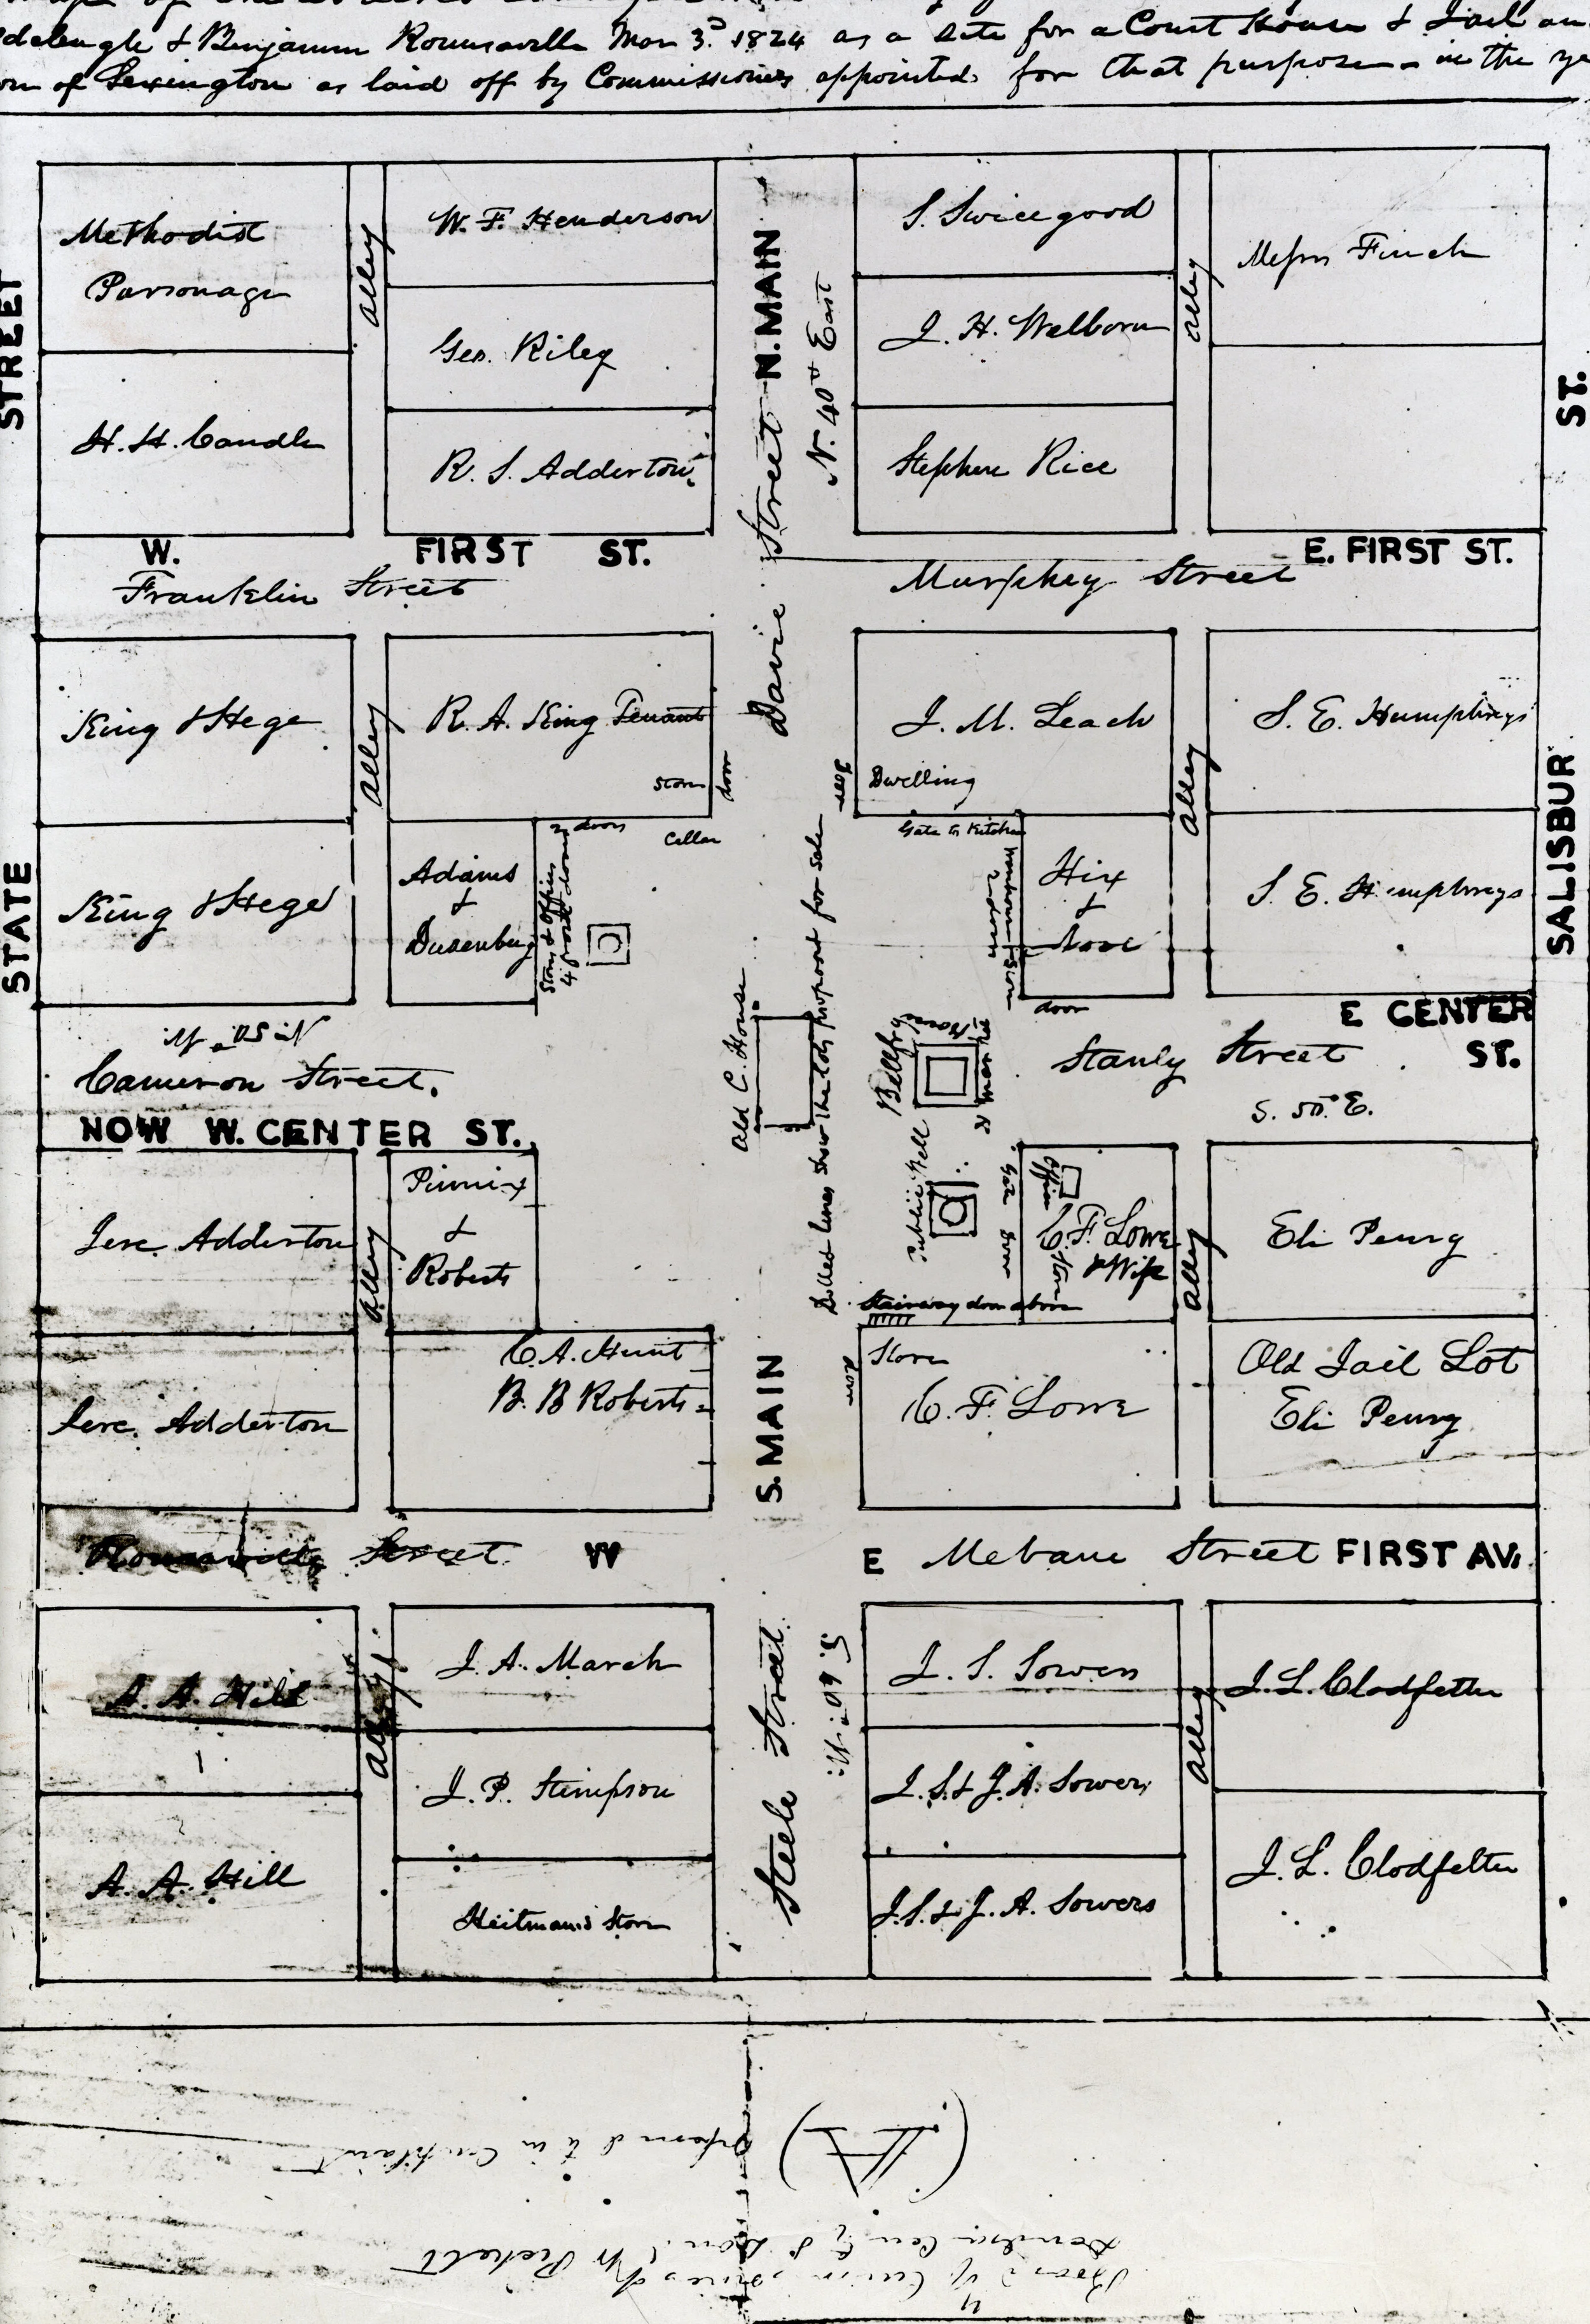 & Benjamin Rounsaville Mar 3d 1824 as a Site for a Court House & Jail an
of Lexington as laid off by Commissioners appointed for that purpose in the ye
STREET
Methodist
Parsonage
Alley
W. F. Henderson
N. MAIN
N. 40d East
S. Swicegood
Alley
Messrs Finch
Geo. Riley
J. H. Welborn
ST.
H. H. Caudle
R. S. Adderton
Street
Stephen Rice
W. FIRST ST.
E. FIRST ST.
Franklin Street
Murphey Street
Davie
King & Hege
Alley
R. A. King Tenant
Store
door
J. M. Leach
door
Dwelling
Alley
S. E. Humphreys
SALISBUR
STATE
King & Hege
Adams
&
Dusenbury
2 doors
Cellar
Store & Offices
4 front doors
Gate to Kitchen
Hix
&
door
S. E. Humphreys
N. 50d W.
E CENTER
ST.
Cameron Street.
NOW W. CENTER ST.
Old C. House
Dotted lines show the lots proposed for sale
Bellfry
Market House
Stanly Street
S. 50d E.
Jere. Adderton
Alley
Pinnix
&
Roberts
Public Well
Office
C. F. Lowe
& Wife
Alley
Eli Penry
Stairway door above
Jere. Adderton
C. A. Hunt
B. B Roberts
S. MAIN
door
Store
C. F. Lowe
Old Jail Lot
Eli Penry
Rounsaville Street W
E Mebane Street FIRST AV.
A. A. Hill
Alley
J. A. March
Steele Street
S. 40d W.
J. S. Sowers
Alley
J. L. Clodfelter
J. P. Stimpson
J. S. & J. A. Sowers
A. A. Hill
Heitman's Store
J. S. & J. A. Sowers
J. L. Clodfelter
(A)